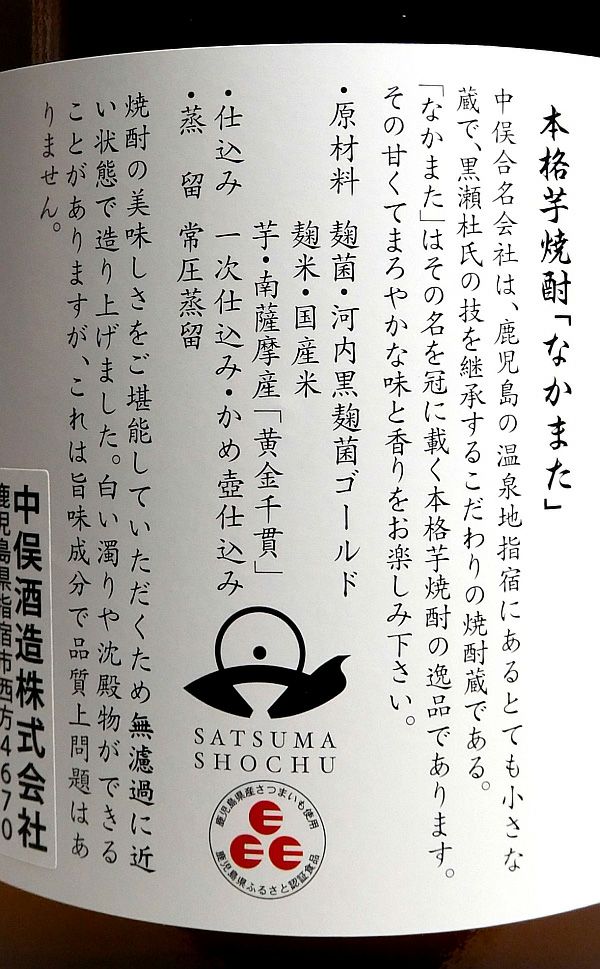 本格芋焼酎「なかまた」
中俣合名会社は、鹿児島の温泉地指宿にあるとても小さな
蔵で、黒瀬杜氏の技を継承するこだわりの焼酎蔵である。
「なかまた」はその名を冠に載く本格芋焼酎の逸品であります。
その甘くてまろやかな味と香りをお楽しみ下さい。
・原材料 麹菌・河内黒麹菌ゴールド
麹米・国産米
芋・南薩摩産「黄金千貫」
・仕込み 一次仕込み・かめ壺仕込み
・蒸留 常圧蒸留
焼酎の美味しさをご堪能していただくため無濾過に近
い状態で造り上げました。白い濁りや沈殿物ができる
ことがありますが、これは旨味成分で品質上問題はあ
りません。
SATSUMA
SHOCHU
鹿児島県産さつまいも使用
鹿児島県ふるさと認証食品
中俣酒造株式会社
鹿児島県指宿市西方4670